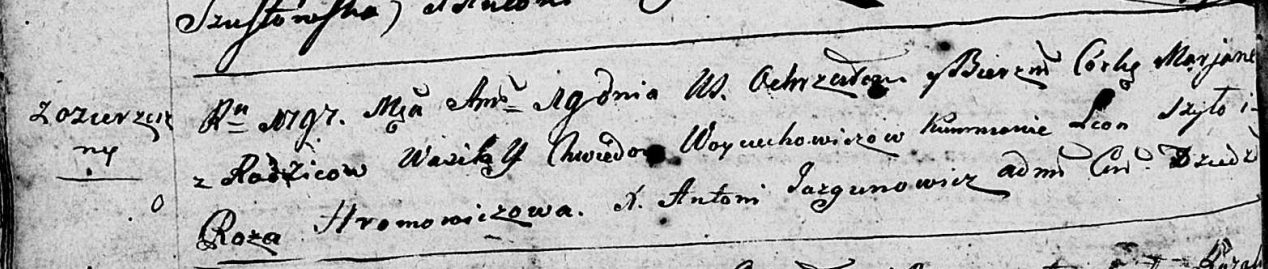 Szustowska, Antoni
z ozierzcz
ny
Ru 1797. Mca 19 dnia Ochrzciłem y Bierzm Córkę Marjanę
z Rodzicow Wasila y Chwiedory Woyciechowiczow Kummowie Leon Szyło i
Roza Hromowiczowa. X. Antoni Jazgunowicz adm